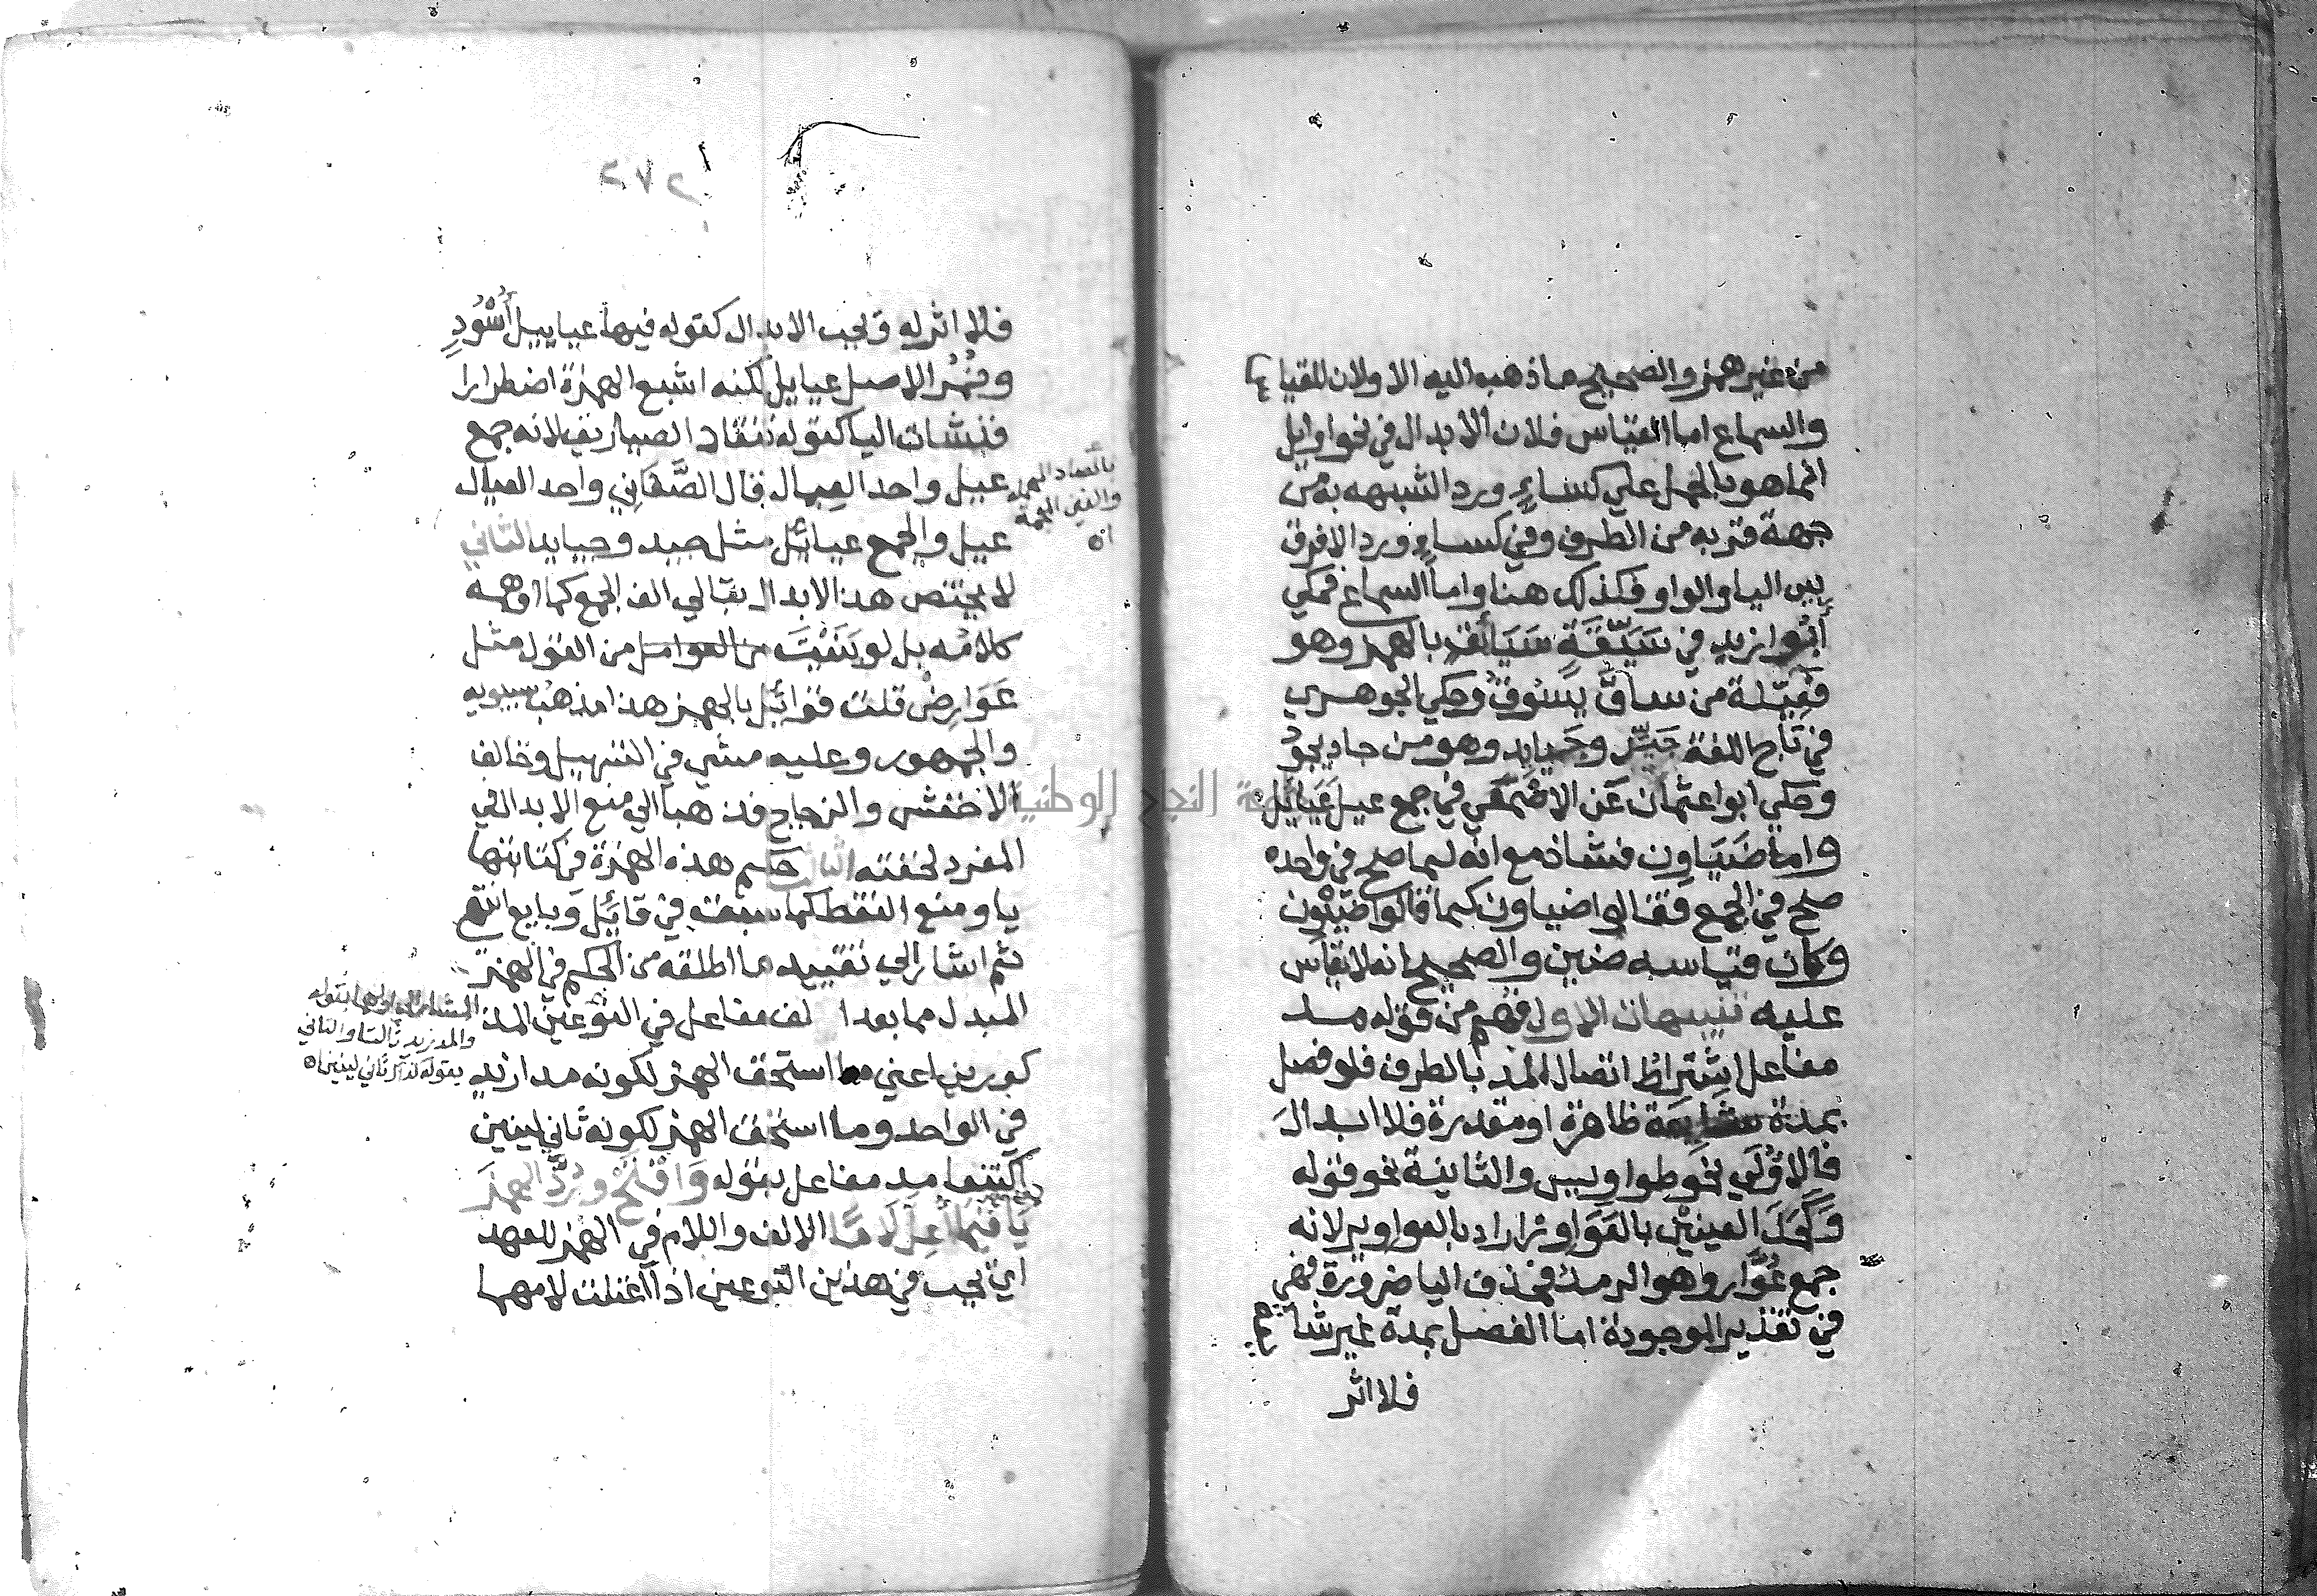 من غير همز والصحيح ما ذهب اليه الاولان للقياس
والسماع اما القياس فلان الابدال في نحو اوايل
انما هو بالحمل على كساءٍ ورد الشبهه به من
جهة قربه من الطرف وفي كساءٍ ورد الا فرق
بين اليا والواو فكذلك هنا واما السماع فحكي
أبُوا زيد في سَيِّقَةٍ سَيَائق بالهمز وهو
فَيْعِلة من ساقَ يَسُوقُ وحكي الجوهري
في تاج اللغة جَيّد وجَيايد وهو من جاد يجودُ
وحكي ابوا عثمان عَن الاصمَعي في جمع عيل عَيَائِل
واما ضَيَاوِن فشاذ مع انه لما صح في واحده
صح في الجمع فقالوا ضياون كما قالوا ضَيْوَن
وكان قياسه ضين والصحيح انه لا يقاس
عليه تنبيهان الاول فُهم من قوله مد
مفاعل اشتراطُ اتصال المد بالطرف فلو فصل
بمدة شايعة ظاهرة او مقدرة فلا ابدالَ
فالاوْلَي نحو طواويس والثانية نحو قوله
وَكَحَلَ العينين بالعَوَاوِر اراد بالعواوير لانه
جمع عُوَّار وهو الرمد فحذف اليا ضرورة فهي
في تقدير الموجودة اما الفصل بمدة غير شايعة
فلا اثر
٢٧٢
فلا اثر له ويجب الابدال كقوله فيها عياييل أُسُودٍ
ونُمُر الاصل عيايل لكنه اشبع الهمزة اضطرارا
فنشات اليا كقوله تنقاد الصياريف لانه جمع
عيل واحد العيال قال الصَّغَانِي واحد العيال
بالصاد المهملة
والغين المعجمة
اه
عيل والجمع عيائل مثل جيد وجيايد الثاني
لا يختص هذا الابدال بتالي الف الجمع كما اوهمه
كلامُه بل لو بَنَيْتَ من القول مثل
عَوَارِضٌ قلت قوائِل بالهمز هذا مذهب سيبويه
والجمهور وعليه مشي في التسهيل وخالف
الاخفش والزجاج فذهبا الي منع الابدال في
المفرد لخفته الثالث حكم هذه الهمزة في كتابتها
يا ومنع النقط كما سبق في قايِل وَبايع انتهى
ثم اشار الي تقييد ما اطلقه من الحكم في الهمز
المبدل مما بعد الف مفاعل في النوعَيْن المذ
المشار الي اولهما بقوله
والمد زيد ثالثا والثاني
بقوله كذاك ثاني لينين اه
كورين اعني ما استحق الهمز لكونه مدا زيد
في الواحد وما استحق الهمز لكونه ثاني لينين
اكتنفا مد مفاعل بقوله وَافْتَحْ وَرُدَّ الهمزَ
يَا فيما أُعِلّ لَامًا الالف واللام في الهمز للعهد
اي يجب في هذين النوعين اذا اعتلت لامهما